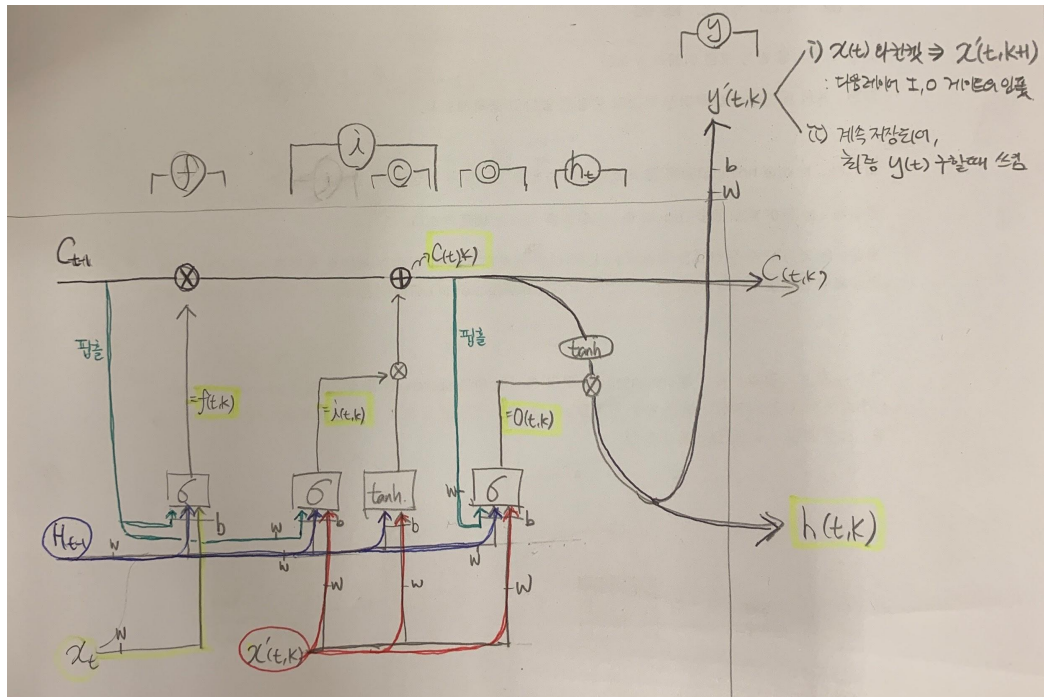 y
i) x(t) 와 한꺼 ⇒ x'(t,k+1)
: 다음레이어 I,O 게이트의 인풋
y'(t,k)
ii) 계속 저장되어,
최종 y(t) 구할때 쓰임
b
W
f
i
C
O
h_t
C_t-1
C(t,k)
C(t,k)
핍홀
핍홀
tanh
=f(t,k)
=i(t,k)
=O(t,k)
σ
σ
tanh
W
σ
b
b
b
b
H_t-1
W
W
W
W
h(t,k)
W
W
W
W
x_t
x'(t,k)